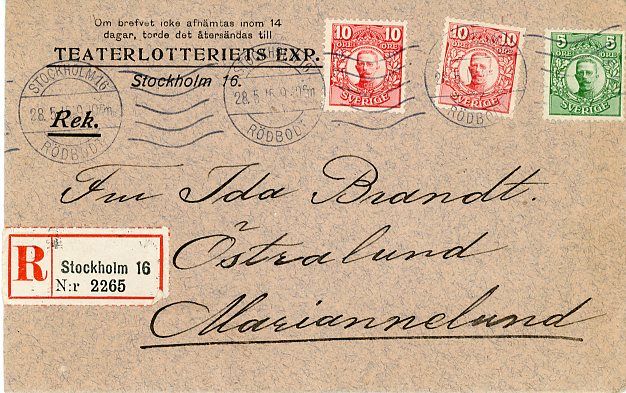 Om brefvet icke afhämtas inom 14
dagar, torde det återsändas till
TEATERLOTTERIETS EXP.
Stockholm 16.
Rek.
STOCKHOLM 16
28.5.15
RÖDBODT.
28.5.15
RÖDBODT.
RÖDBODT.
10 10
ÖRE ÖRE
SVERIGE
10 10
ÖRE ÖRE
SVERIGE
5 5
ÖRE ÖRE
SVERIGE
Fru Ida Brandt.
Östralund
Mariannelund
R
Stockholm 16
N:r 2265